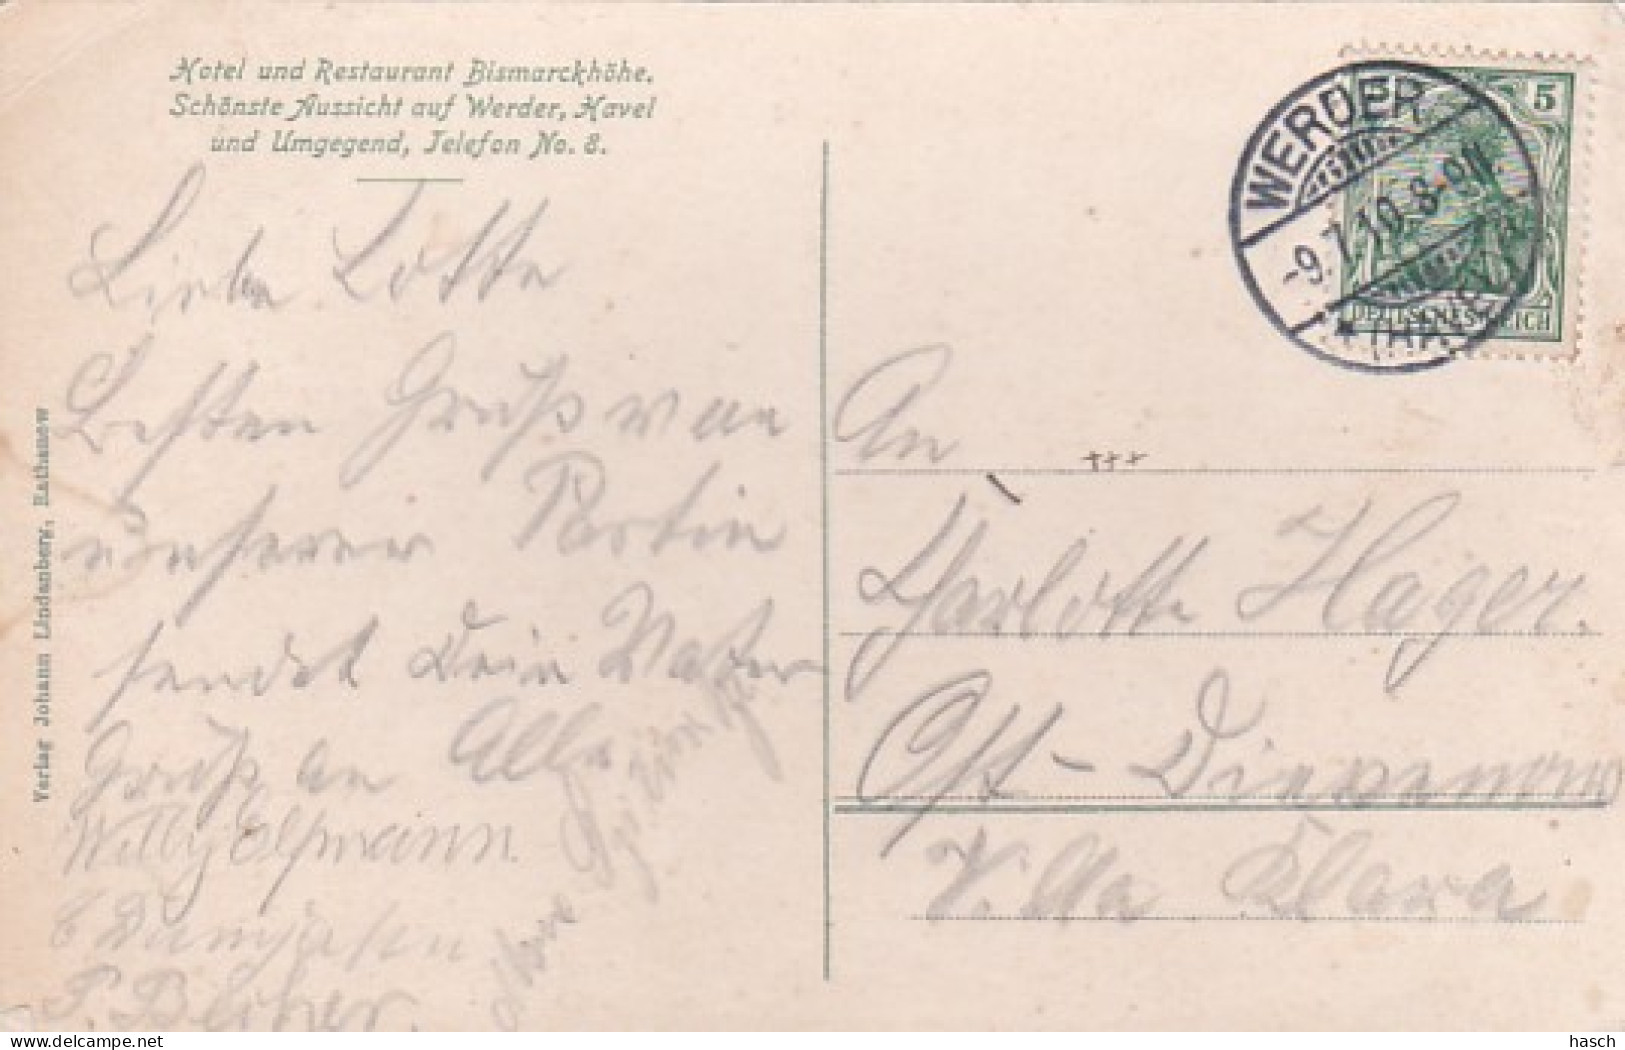 Hotel und Restaurant Bismarckhöhe.
Schönste Aussicht auf Werder, Havel
und Umgegend, Telefon No. 8.
Liebe Lotte
Besten Gruß von
unserer Partie
sendet Dein Vater
Gruß an Alle
Willy Elßmann.
P.
Verlag Johann Lindenberg, Rathenow
WERDER
-9.7.10. 8-9N.
* (HAVEL)
5
DEUTSCHES REICH
An
Charlotte Hager.
Ost-Dievenow
Villa Klara
hasch